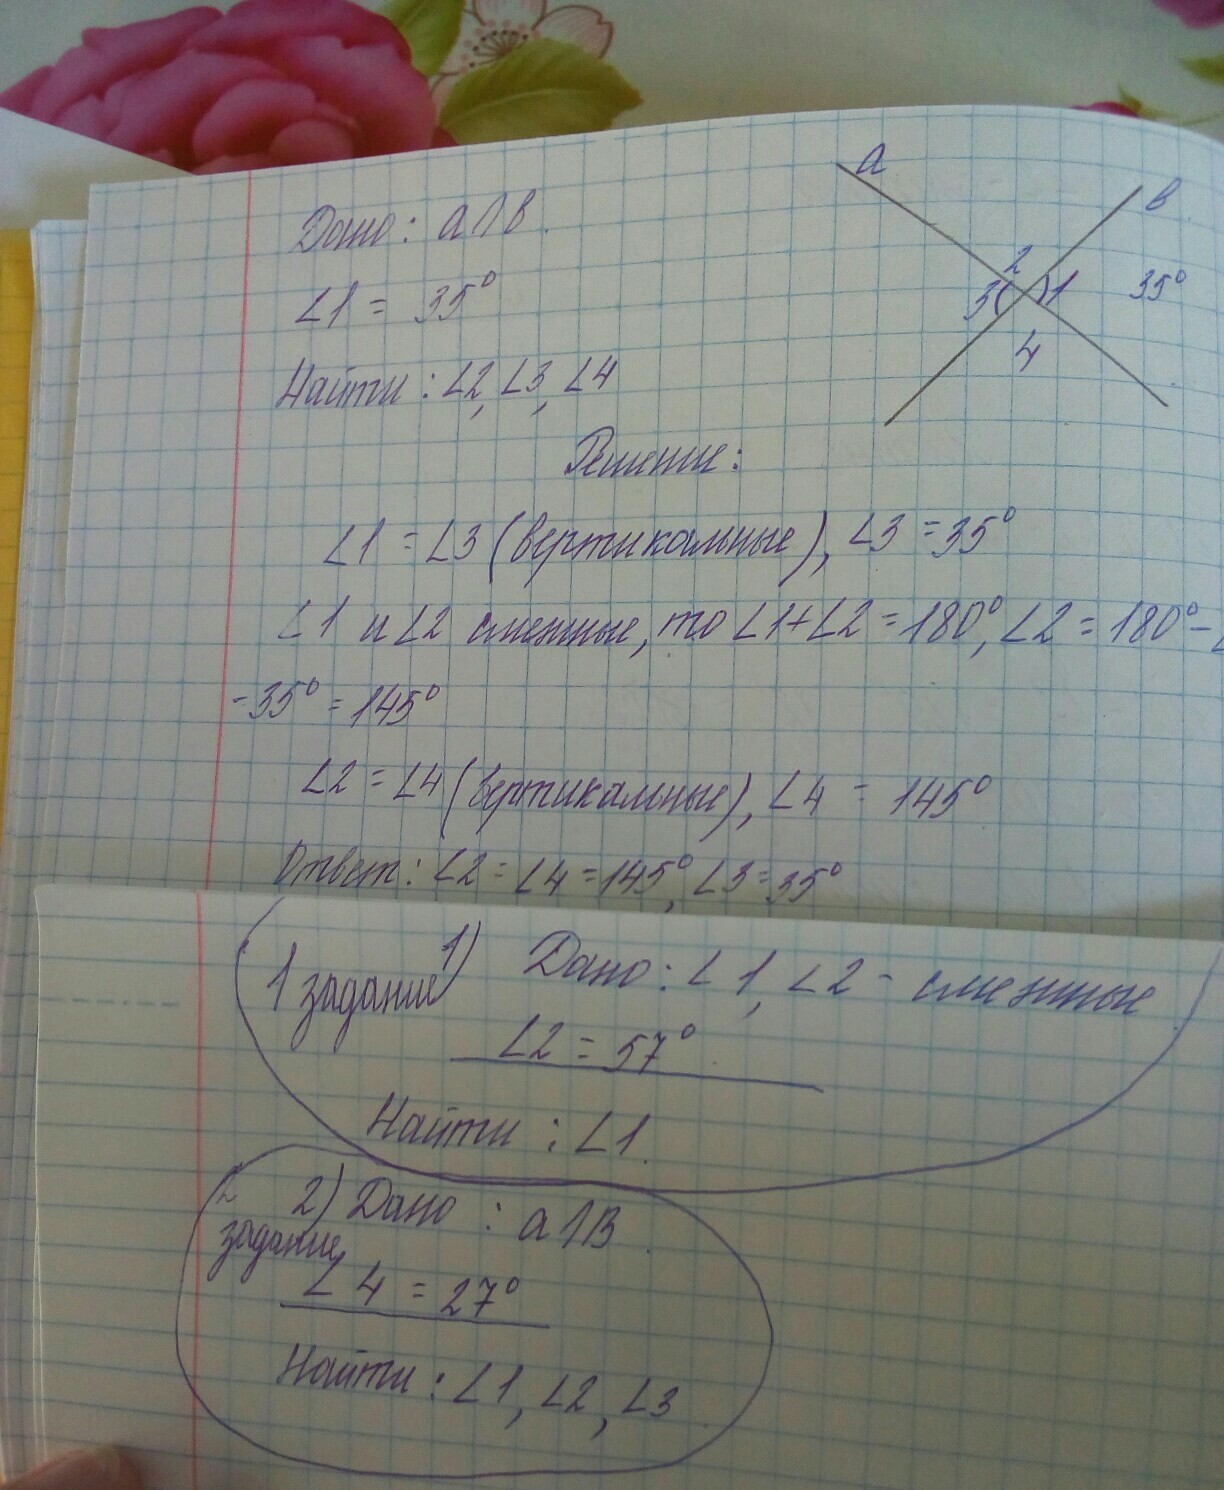 Дано: a∩b.
∠1 = 35°
Найти: ∠2, ∠3, ∠4
a
b
2
3
1
35°
4
Решение:
∠1 = ∠3 (вертикальные), ∠3 = 35°
∠1 и ∠2 смежные, то ∠1+∠2 = 180°, ∠2 = 180° -
- 35° = 145°
∠2 = ∠4 (вертикальные), ∠4 = 145°
Ответ: ∠2 = ∠4 = 145°, ∠3 = 35°
1 задание
1) Дано: ∠1, ∠2 - смежные
∠2 = 57°.
Найти: ∠1.
2 задание
2) Дано: a∩b.
∠4 = 27°
Найти: ∠1, ∠2, ∠3.